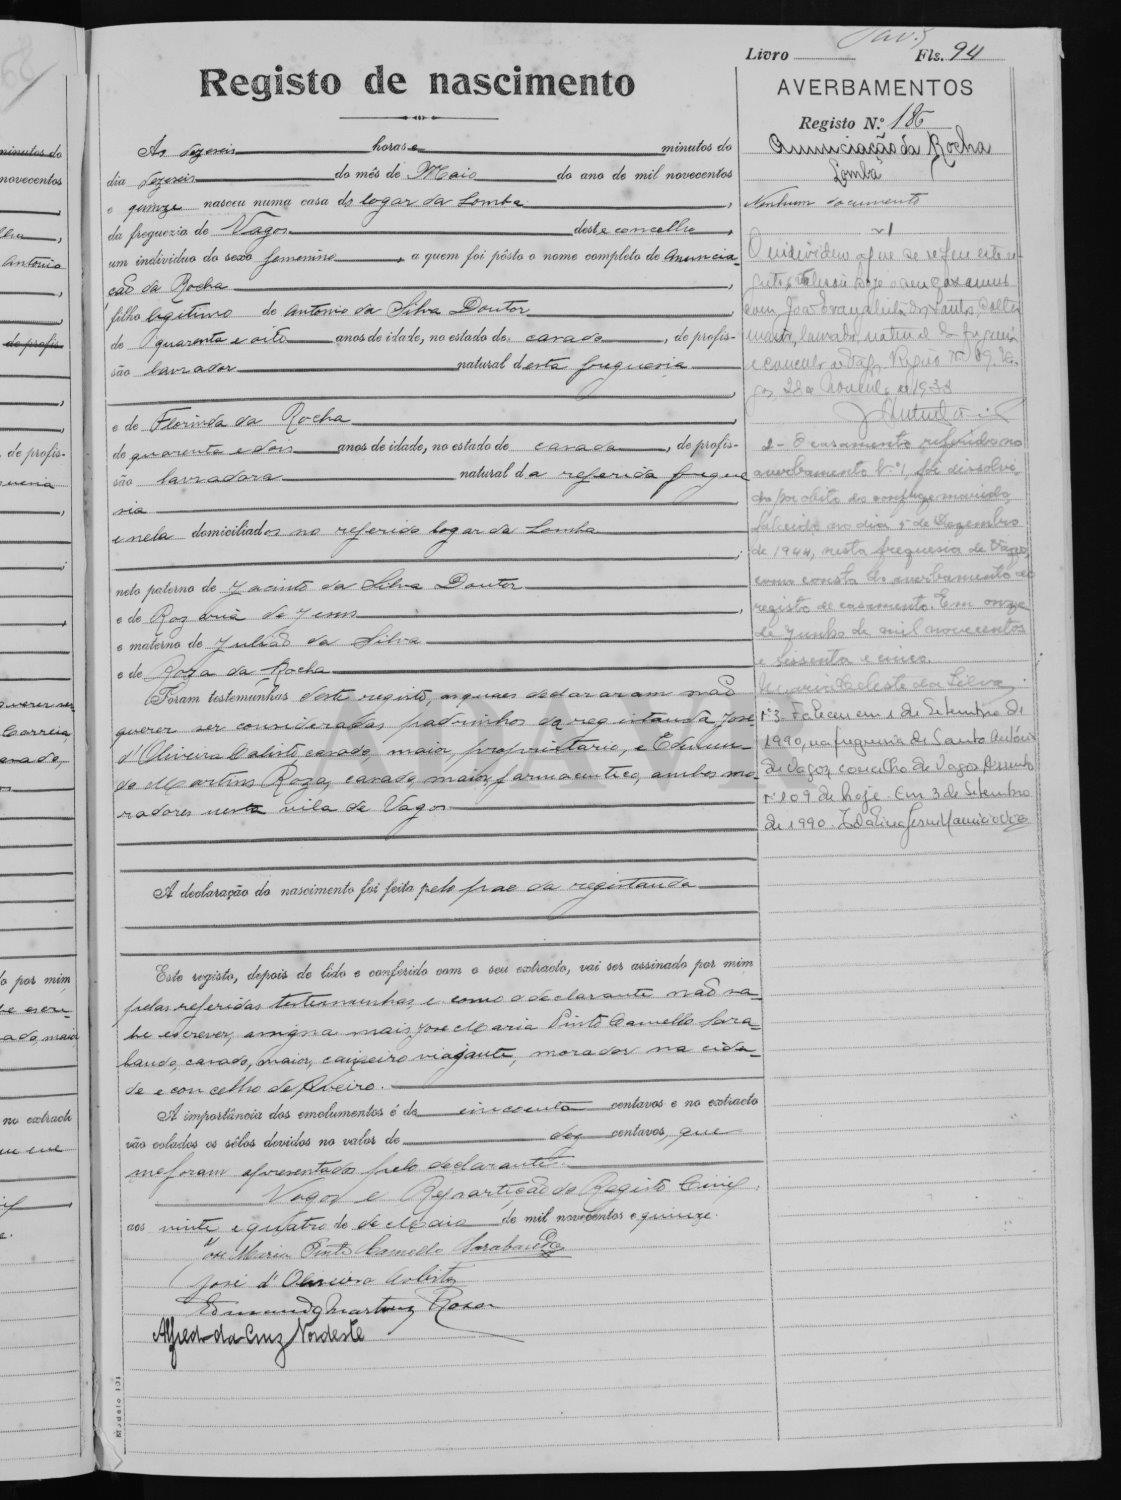 Livro Fls. 94
Registo de nascimento
AVERBAMENTOS
Registo N.º 186
Anunciação da Rocha
Lomba
Nenhum documento
Às dezeseis horas e minutos do
dia dezeseis do mês de Maio do ano de mil novecentos
e quinze nasceu numa casa do logar da Lomba,
da freguezia de Vagos deste concelho,
um individuo do sexo femenino, a quem foi pôsto o nome completo de Anuncia-
ção da Rocha,
filho legitimo de Antonio da Silva Doutor,
de quarenta e oito anos de idade, no estado de casado, de profis-
são lavrador natural desta freguesia
e de Florinda da Rocha,
de quarenta e dois anos de idade, no estado de casada, de profis-
são lavradora natural da referida fregue
sia
e nela domiciliados no referido logar da Lomba
neto paterno de Jacinto da Silva Doutor
e de Rozaria de Jesus,
e materno de Julião da Silva
e de Roza da Rocha
Foram testemunhas deste registo, as quaes declararam não
querer ser consideradas padrinhos da registanda, José
d'Oliveira Calisto, casado, maior, proprietario, e Edmun-
do Martins Roza, casado, maior, farmaceutico, ambos mo-
radores nesta vila de Vagos
A declaração do nascimento foi feita pelo pae da registanda
Este registo, depois de lido e conferido com o seu extracto, vai ser assinado por mim
pelas referidas testemunhas, e como o declarante não sa-
be escrever, assigna mais José Maria Pinto Camello Sara-
bando, casado, maior, caixeiro viajante, morador na cida-
de e concelho de Aveiro.
A importância dos emolumentos é de cincoenta centavos e no extracto
vão colados os sêlos devidos no valor de dez centavos, que
me foram apresentados pelo declarante.
Vagos e Repartição do Registo Civil,
aos vinte e quatro de de Maio de mil novecentos e quinze.
José Maria Pinto Camello Sarabando
José d'Oliveira Calisto
Edmundo Martins Rosa
Alfredo da Cruz Nordeste
Modelo 101
nº 1
O individuo a que se refere este re-
gisto celebrou hoje o seu casamento
com João Evangelista dos Santos
lavrador, natural da freguesia
e concelho de Vagos. Registo nº 69. Va-
gos 22 de Novembro de 1933
2 - O casamento referido no
averbamento nº 1, foi dissolvi-
do por obito do conjuge marido,
falecido no dia 5 de Dezembro
de 1944, nesta freguesia de Vagos,
como consta do averbamento ao
registo de casamento. Em onze
de Junho de mil novecentos
e sessenta e cinco.
Maria Celeste da Silva
nº 3. Faleceu em 1 de Setembro de
1990, na freguesia de Santo António
de Vagos, concelho de Vagos. Assento
nº 109 de hoje. Em 3 de Setembro
de 1990.
ADAVR